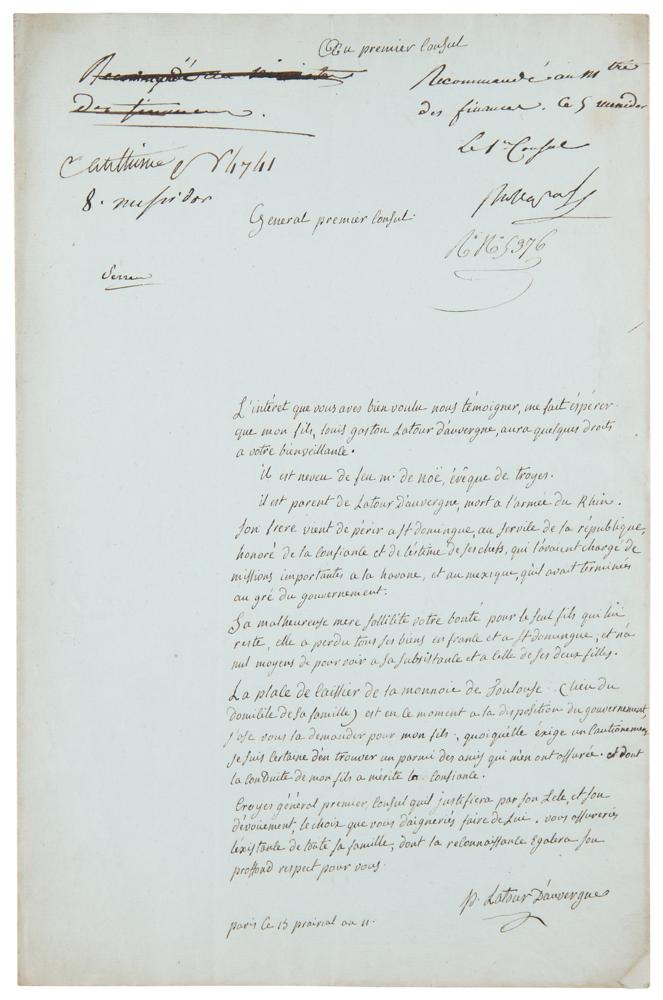 Au premier Consul
Recommandé au ministre
des finances.
Recommandé au Mtre
des finances. Ce 5 messidor
Le 1er Consul
N° 4741
8. messidor
General premier consul.
N° 5376
L'intéret que vous avés bien voulu nous témoigner, me fait éspérer
que mon fils, louis gaston Latour d'auvergne, aura quelques droits
a votre bienveillance.
il est neveu de feu mr. de noë, évêque de troyes.
il est parent de Latour D'auvergne, mort a l'armée du Rhin.
son frere vient de périr a st domingue, au service de la république,
honoré de la confiance et de l'éstime de ses chefs, qui l'avaient chargé de
missions importantes a la havane, et au mexique, qu'il avait terminées
au gré du gouvernement.
Sa malheureuse mere sollicite votre bonté pour le seul fils qui lui
reste, elle a perdu tous ses biens en france et a st domingue, et n'a
nul moyens de pourvoir a sa subsistance et a celle de ses deux filles.
La place de caissier de la monnoie de Toulouse (lieu du
domicile de sa famille) est en ce moment a la disposition du gouvernement,
j'ose vous la demander pour mon fils, quoiquelle éxige un cautionnement
je suis certaine d'en trouver un parmi des amis qui m'en ont assurée. et dont
la conduite de mon fils a mérité la confiance.
Croyés général premier Consul qu'il justifiera par son Zele, et son
dévouement, le choix que vous daigneriés faire de Lui. vous assureriés
l'existance de toute sa famille, dont la reconnaissance Egalera son
proffond respect pour vous.
p. Latour D'auvergne
paris ce 15 prairial an 11.